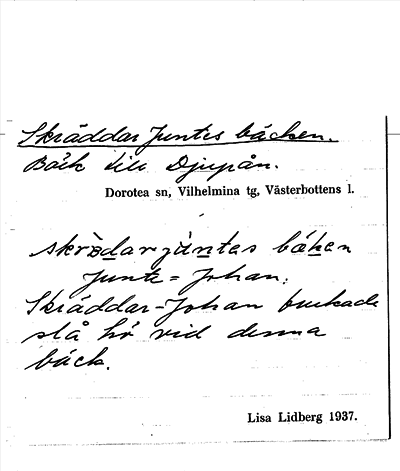 Skräddar Juntes bäcken.
Bäck till Djupån.
Dorotea sn, Vilhelmina tg, Västerbottens l.
bäken
Junte = Johan.
Skräddar-Johan brukade
slå hö vid denna
bäck.
Lisa Lidberg 1937.